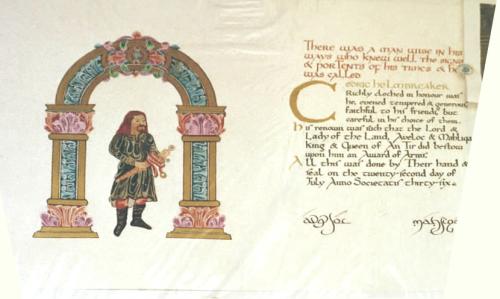 There was a man wise in his
ways who knew well the signs
& portents of his times & he
was called
Cedric the Lawmaker
Richly cloched in honour was
he, evened tempered & generous,
faithful to his friends, but
careful in his choice of them.
His renown was such that the Lord &
Lady of the Land,
king & Queen of An Tir did bestow
upon him an Award of Arms.
All this was done by Their hand &
seal on the twenty-second day of
July Anno Societatis thirty-six